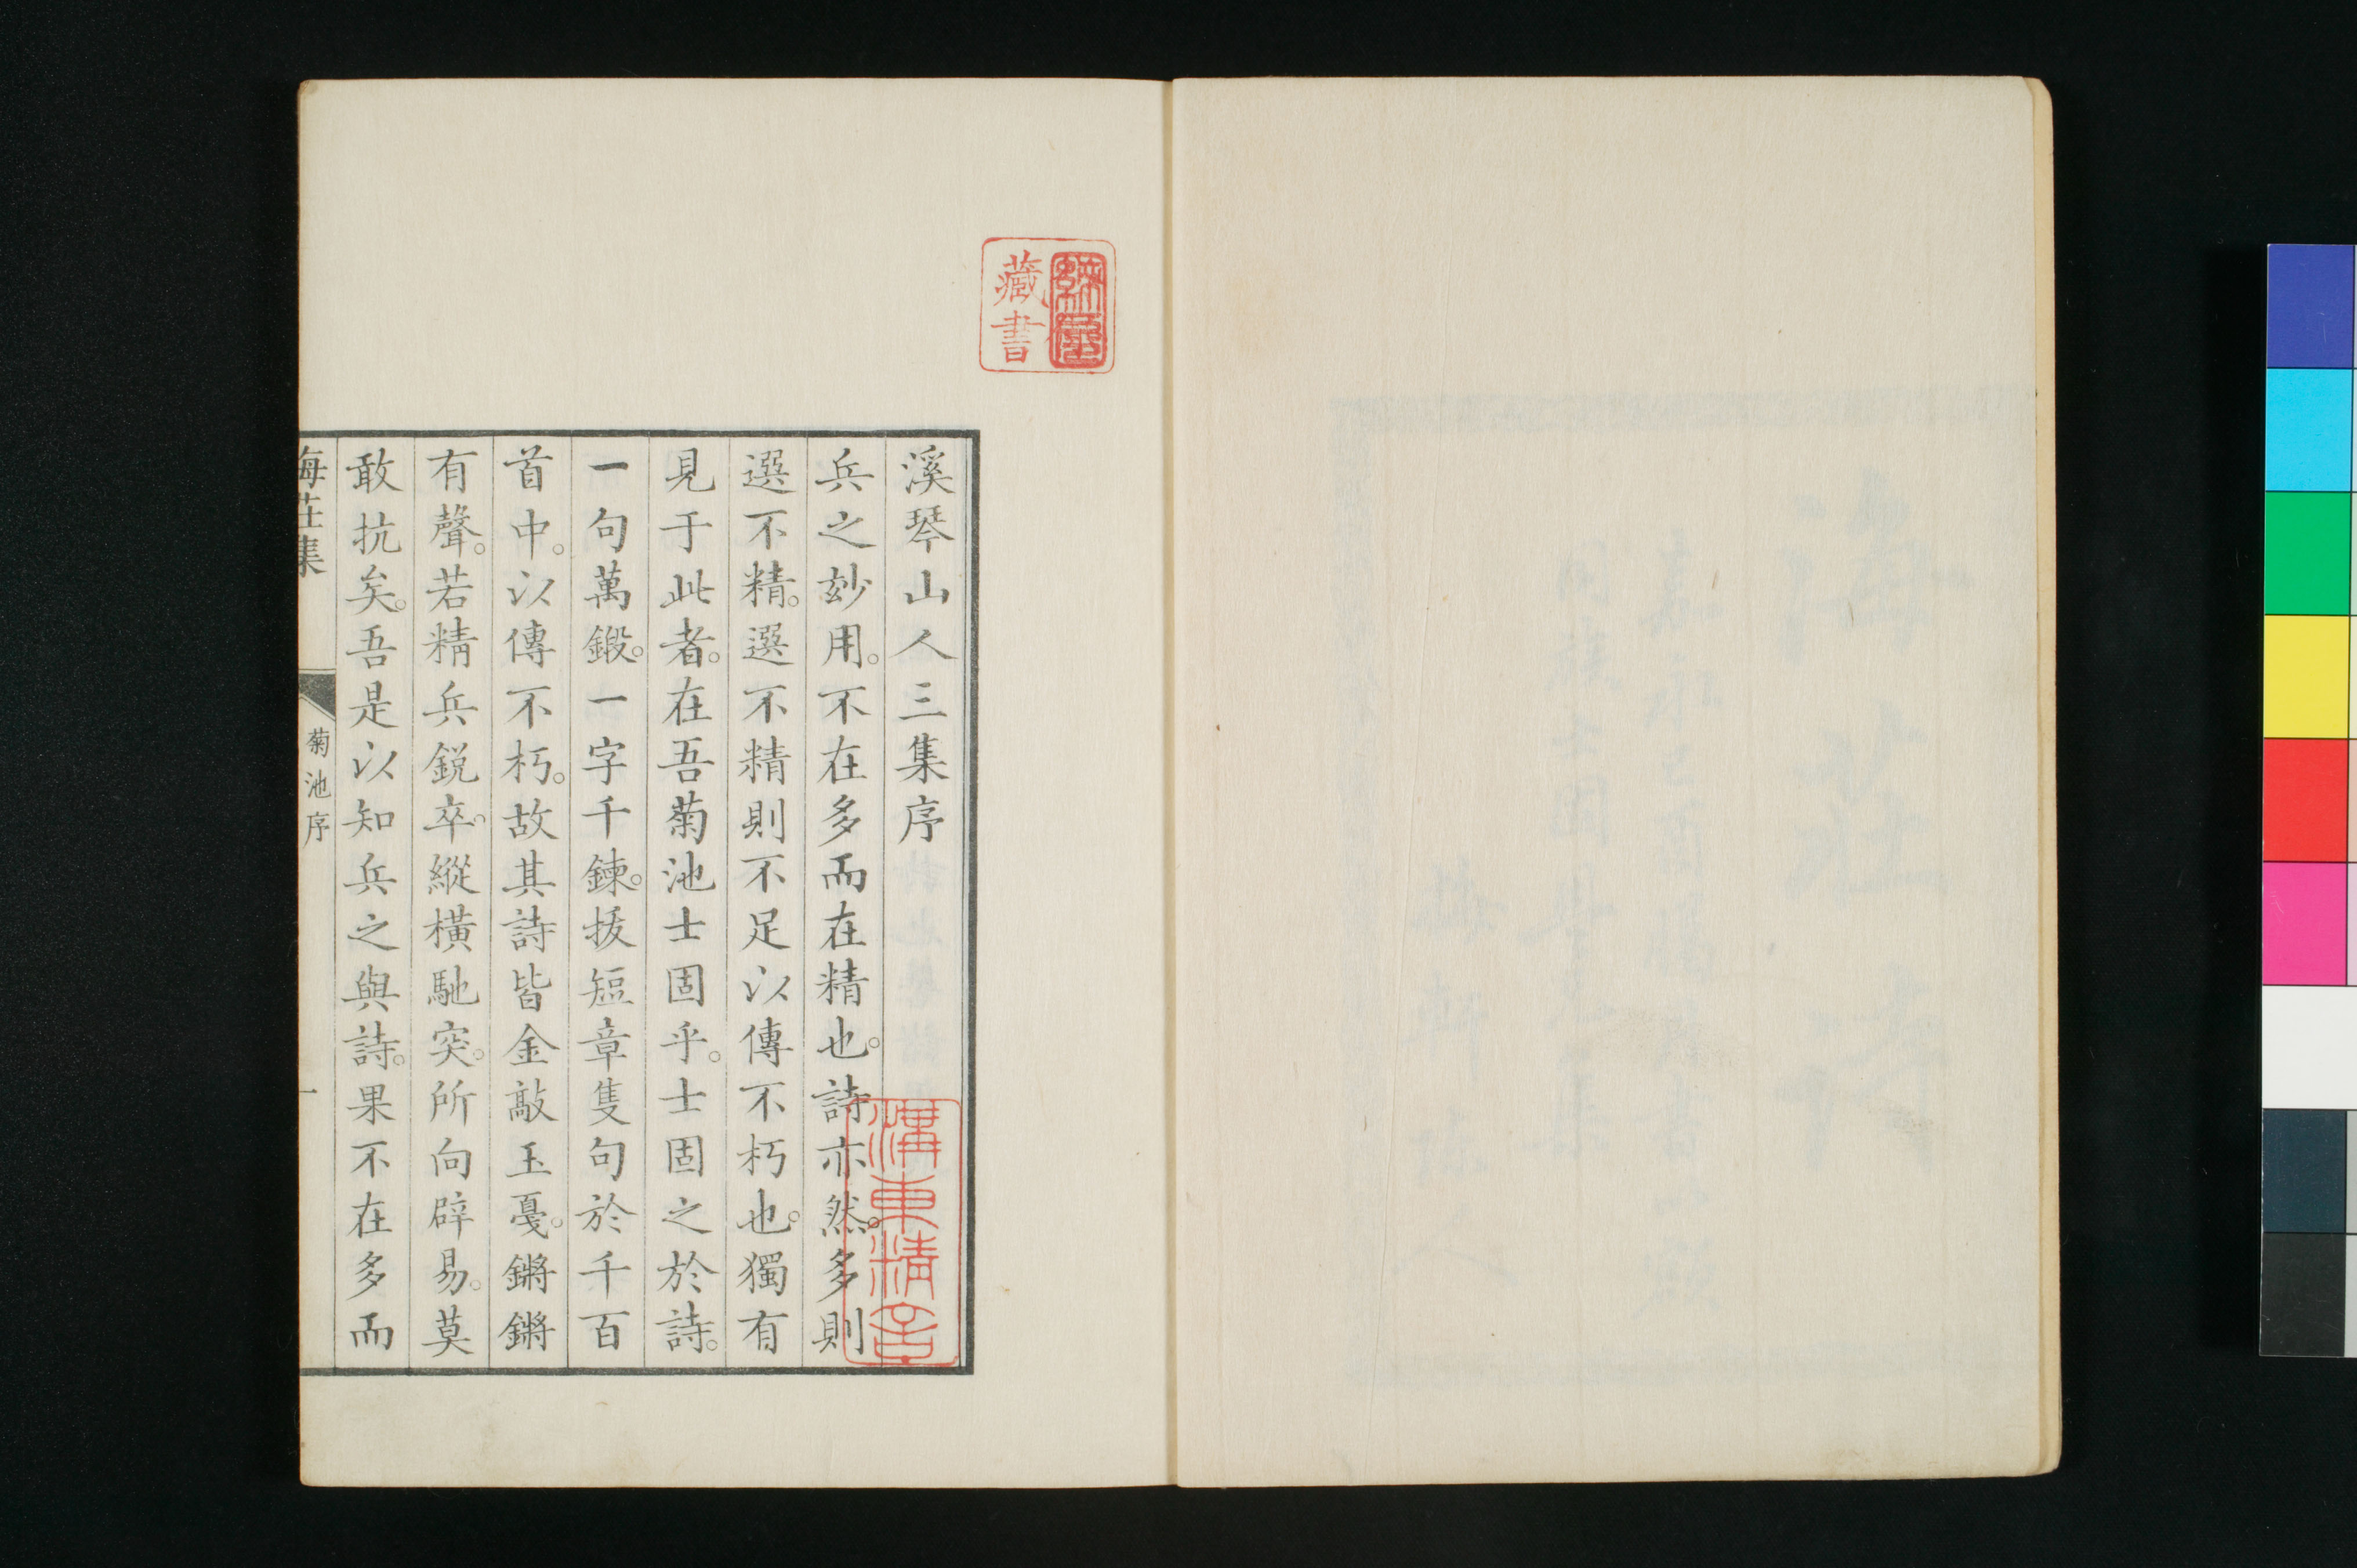 藏書
溪琴山人三集序
兵之玅用。不在多而在精也。詩亦然。多則
選不精。選不精則不足以傳不朽也。獨有
見于此者。在吾菊池士固乎。士固之於詩。
一句萬鍛。一字千鍊。拔短章隻句於千百
首中。以傳不朽。故其詩皆金敲玉戛。鏘鏘
有聲。若精兵銳卒。縱橫馳突。所向辟易。莫
敢抗矣。吾是以知兵之與詩。果不在多而
海莊集
菊池序
一
溝東精舍